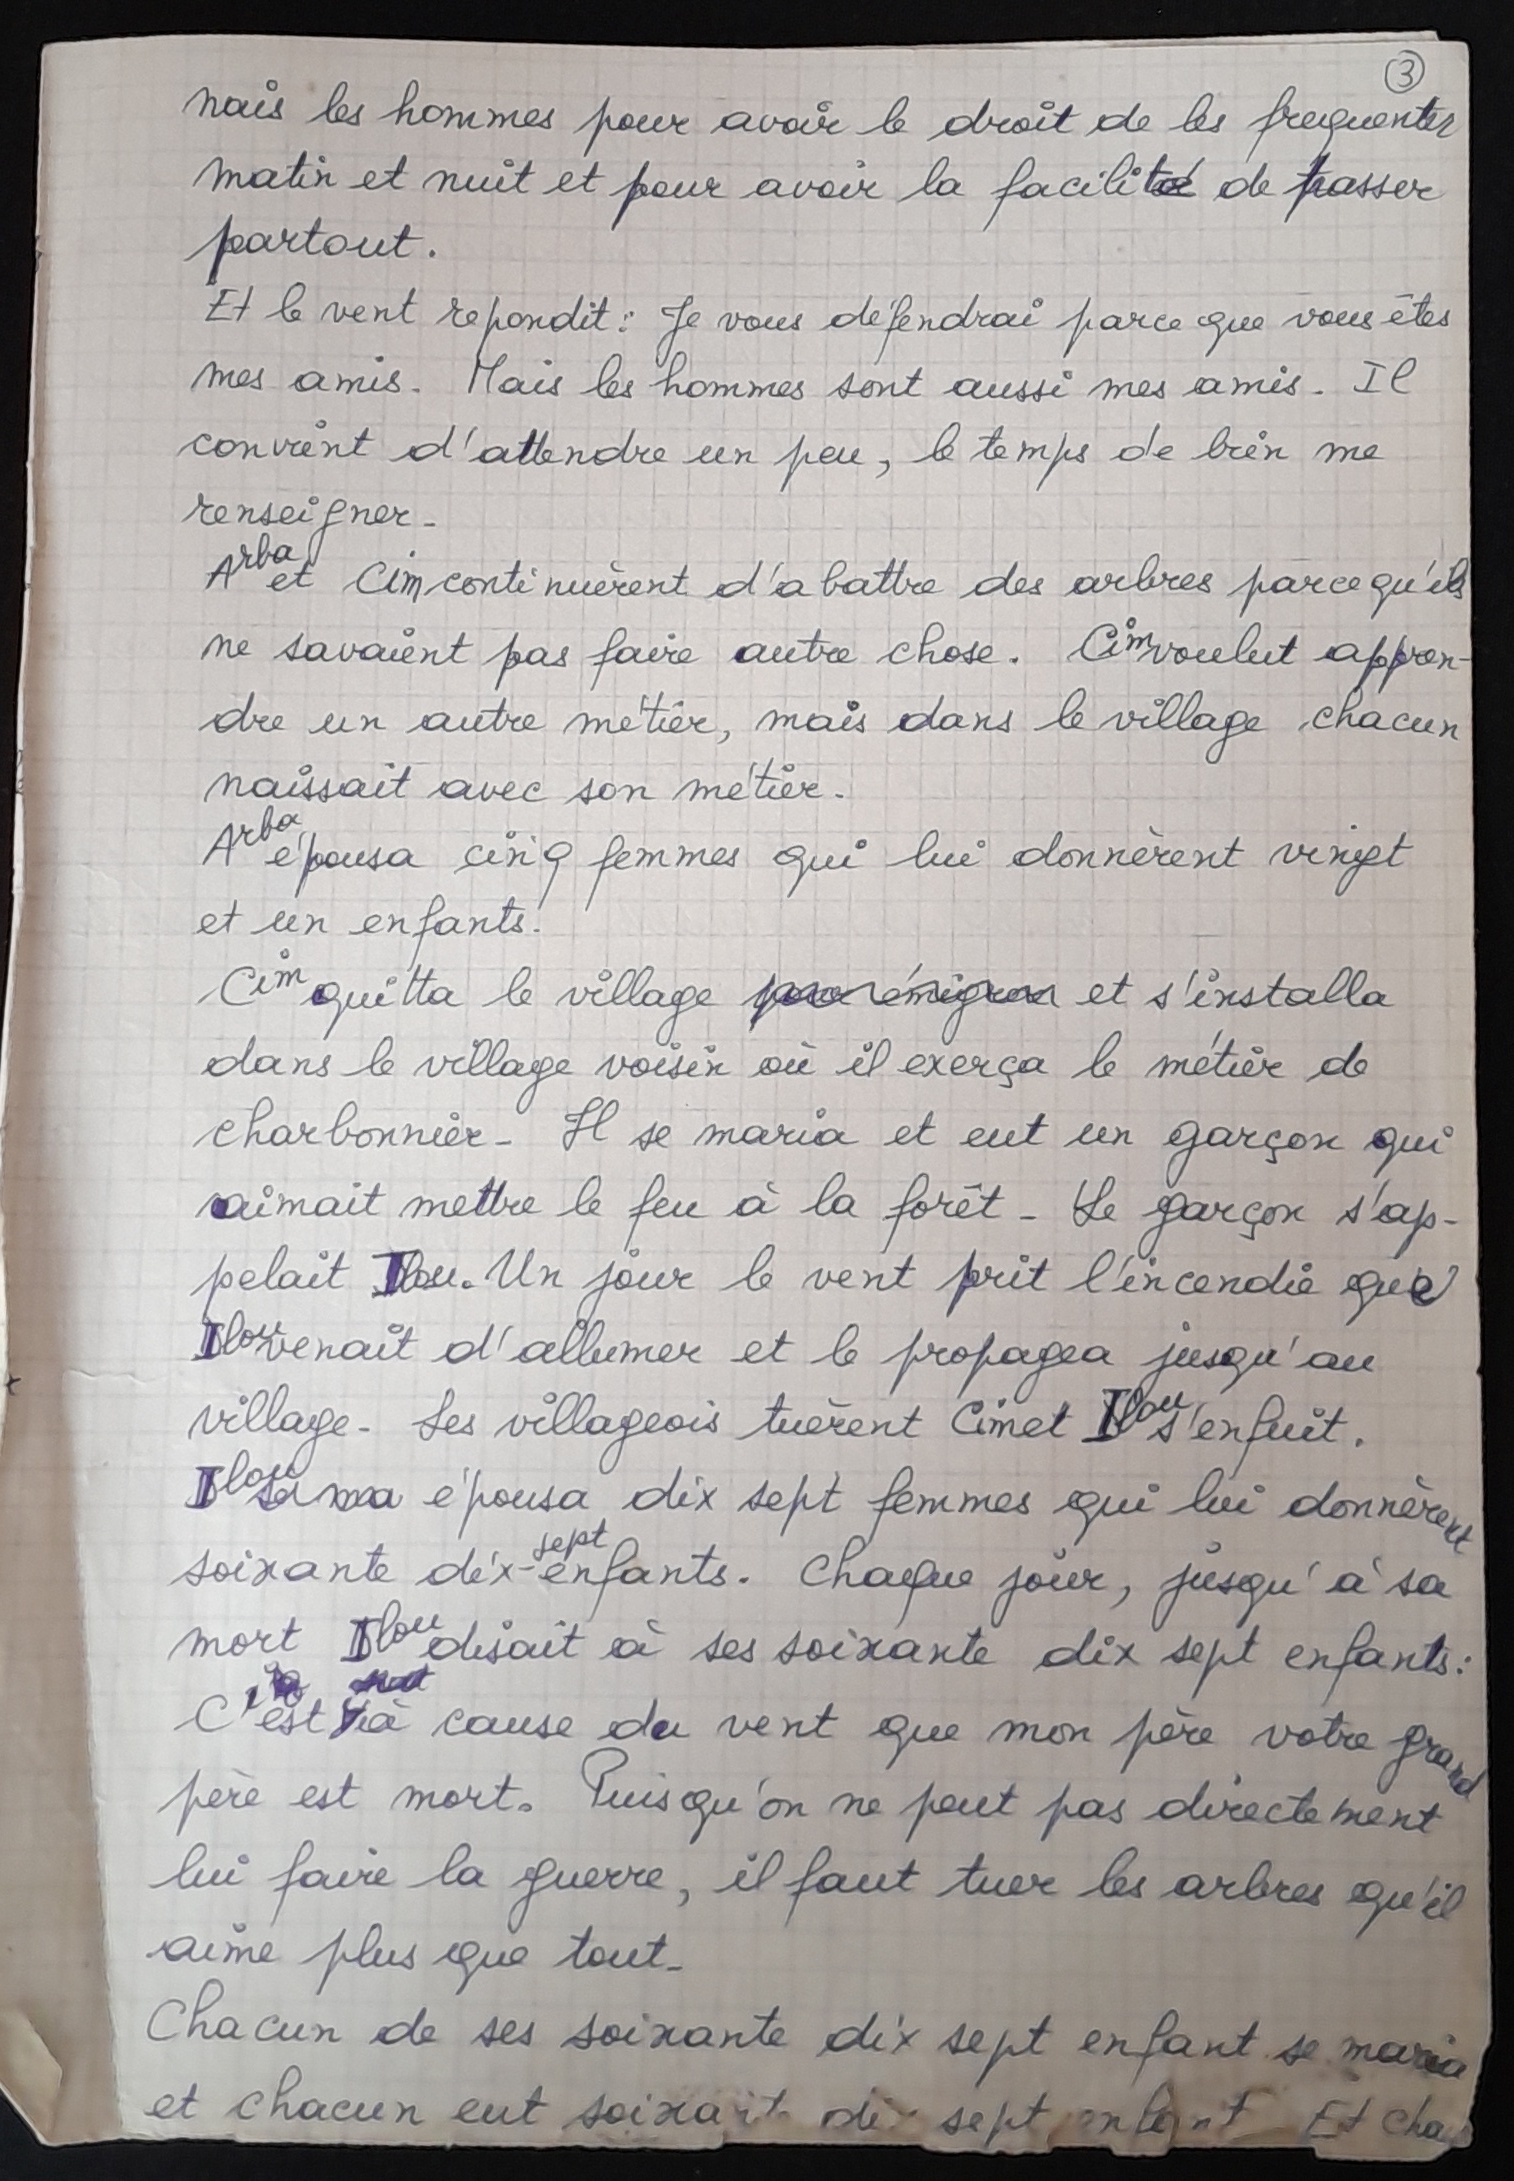 3
nais les hommes pour avoir le droit de les frequenter
matin et nuit et pour avoir la facilité de passer
partout.
Et le vent repondit : Je vous défendrai parce que vous êtes
mes amis. Mais les hommes sont aussi mes amis. Il
convient d'attendre un peu, le temps de bien me
renseigner.
Arba et Cim continuèrent d'abattre des arbres parce qu'ils
ne savaient pas faire autre chose. Cim voulut appren-
dre un autre métier, mais dans le village chacun
naissait avec son métier.
Arba épousa cinq femmes qui lui donnèrent vingt
et un enfants.
Cim quitta le village pour émigrer et s'installa
dans le village voisin où il exerça le métier de
charbonnier. Il se maria et eut un garçon qui
aimait mettre le feu à la forêt. Le garçon s'ap-
pelait Ilou. Un jour le vent prit l'incendie que
Ilou venait d'allumer et le propagea jusqu'au
village. Les villageois tuèrent Cim et Ilou s'enfuit.
Ilou épousa dix sept femmes qui lui donnèrent
soixante dix-sept enfants. Chaque jour, jusqu'à sa
mort Ilou disait à ses soixante dix sept enfants :
C'est à cause du vent que mon père votre grand
père est mort. Puisqu'on ne peut pas directement
lui faire la guerre, il faut tuer les arbres qu'il
aime plus que tout.
Chacun de ses soixante dix sept enfant se maria
et chacun eut soixante dix sept enfant Et cha